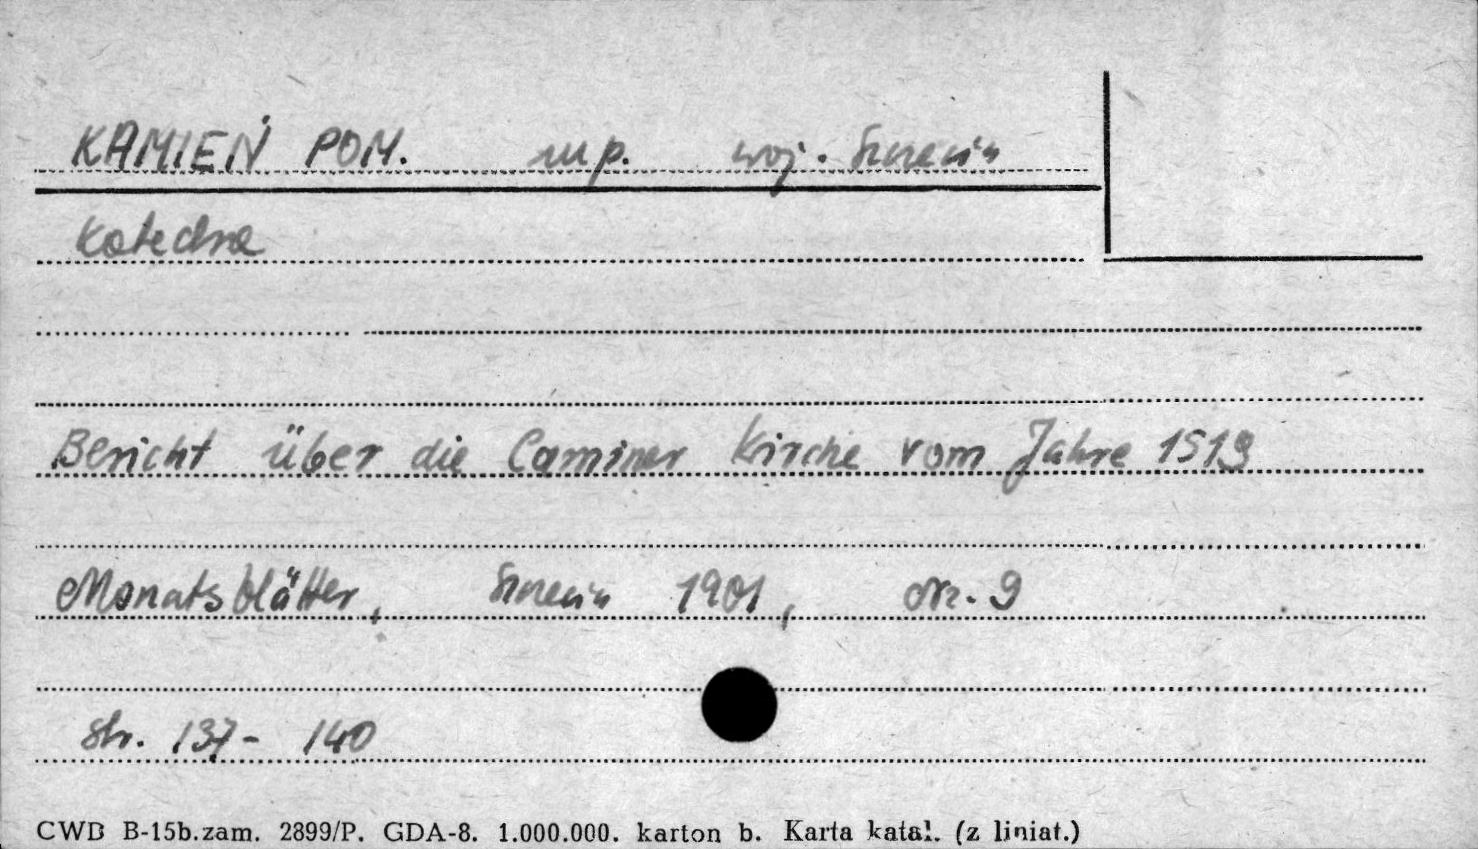 KAMIEŃ POM. mp. woj. Szczecin
Katedra
Bericht über die Caminer Kirche vom Jahre 1519
Monatsblätter, Szczecin 1901, Nr. 9
str. 137- 140
CWD B-15b.zam. 2899/P. GDA-8. 1.000.000. karton b. Karta katal. (z liniat.)